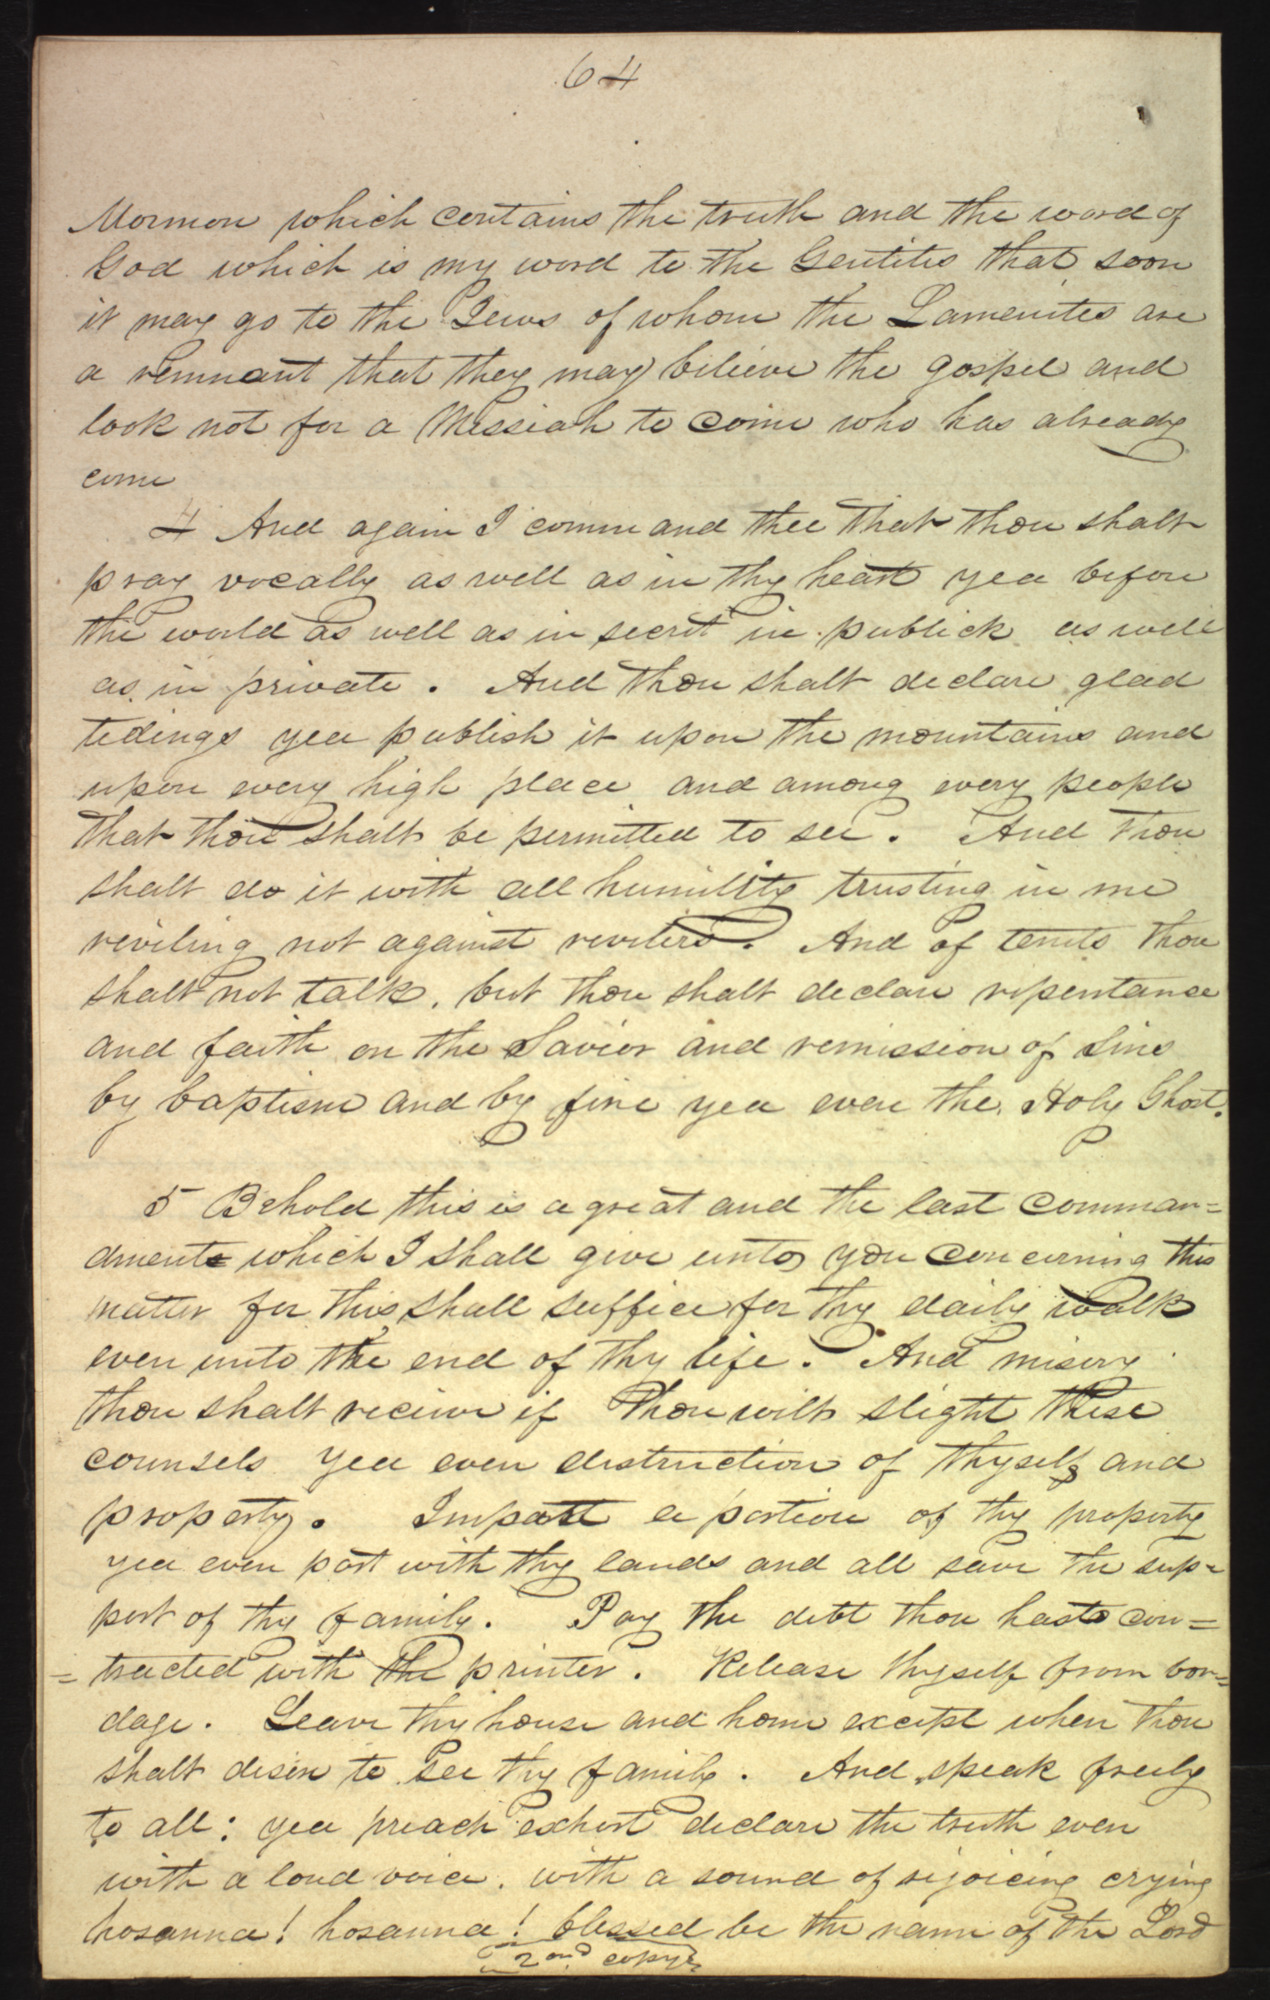 64
Mormon which contains the truth and the word of
God which is my word to the Gentiles that soon
it may go to the Jews of whom the Lamenites are
a remnant that they may believe the gospel and
look not for a Messiah to come who has already
come
4 And again I command thee that thou shalt
pray vocally as well as in thy heart yea before
the world as well as in secret in publick as well
as in private. And thou shalt declare glad
tidings yea publish it upon the mountains and
upon every high place and among every people
that thou shalt be permitted to see. And thou
shalt do it with all humility trusting in me
reviling not against revilers. And of tenets thou
shalt not talk, but thou shalt declare repentance
and faith on the Savior and remission of sins
by baptism and by fire yea even the Holy Ghost.
5 Behold this is a great and the last comman=
dment which I shall give unto you concerning this
matter for this shall suffice for thy daily walk
even unto the end of thy life. And misery
thou shalt receive if thou wilt slight these
counsels yea even destruction of thyself and
property. Impart a portion of thy property
yea even part with thy lands and all save the sup=
port of thy family. Pay the debt thou hast con=
=tracted with the printer. Release thyself from bon=
dage. Leave thy house and home except when thou
shalt desire to see thy family. And speak freely
to all: yea preach exhort declare the truth even
with a loud voice, with a sound of rejoicing crying
hosanna! hosanna! blessed be the name of the Lord
2nd copy